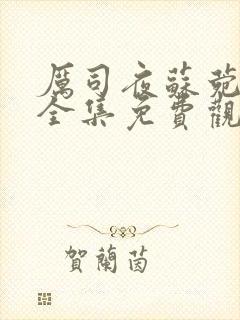 厲司夜蘇菀
全集免費觀
賀蘭茵